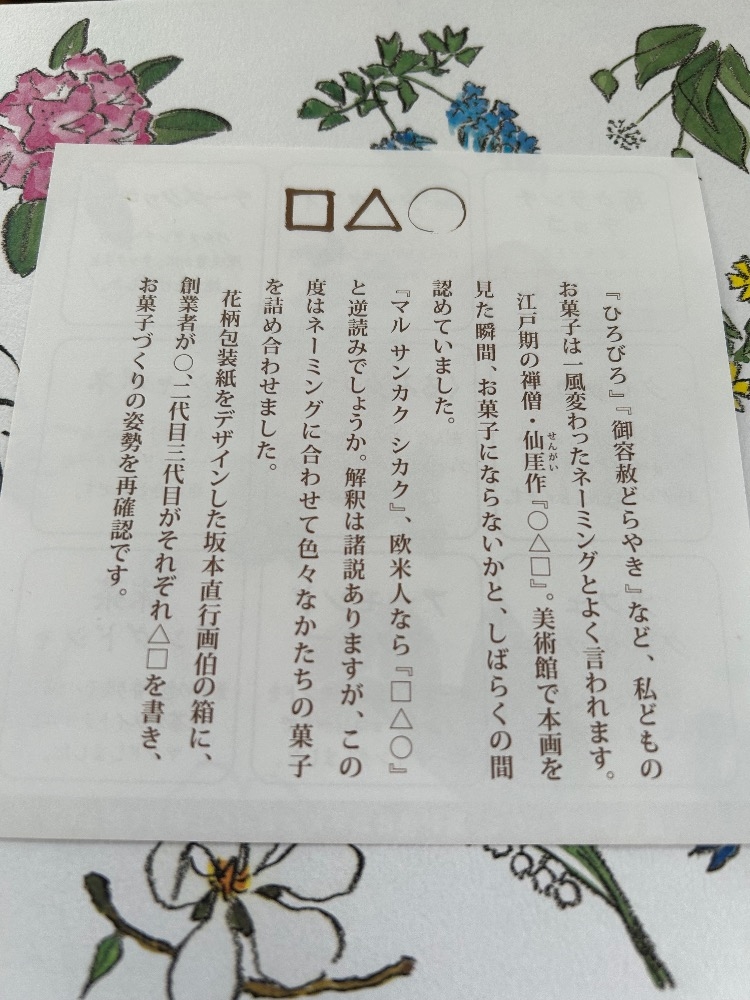 □△○
『ひろびろ』『御容赦どらやき』など、私どもの
お菓子は一風変わったネーミングとよく言われます。
江戸期の禅僧・仙厓作『○△□』。美術館で本画を
せんがい
見た瞬間、お菓子にならないかと、しばらくの間
認めていました。
『マル サンカク シカク』、欧米人なら『□△○』
と逆読みでしょうか。解釈は諸説ありますが、この
度はネーミングに合わせて色々なかたちの菓子
を詰め合わせました。
花柄包装紙をデザインした坂本直行画伯の箱に、
創業者が○、二代目三代目がそれぞれ△□を書き、
お菓子づくりの姿勢を再確認です。